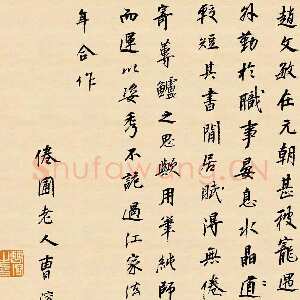 趙文敏在元朝甚被寵遇
外勤於職事晏息水晶道
較短其書閒居賦得無倦
寄蓴鱸之思歟用筆純師
而運以姿秀不訑過江家法
年合作
倦圃老人曹溶
Shufawang.CN